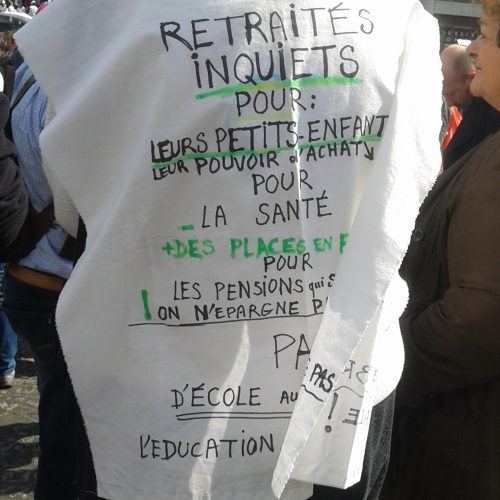 RETRAITÉS
INQUIETS
POUR:
LEURS PETITS-ENFANT
LEUR POUVOIR d'ACHAT
POUR
- LA SANTÉ
+DES PLACES EN
POUR
LES PENSIONS qui
! ON N'EPARGNE
PA
D'ÉCOLE AU
PAS
!
L'EDUCATION